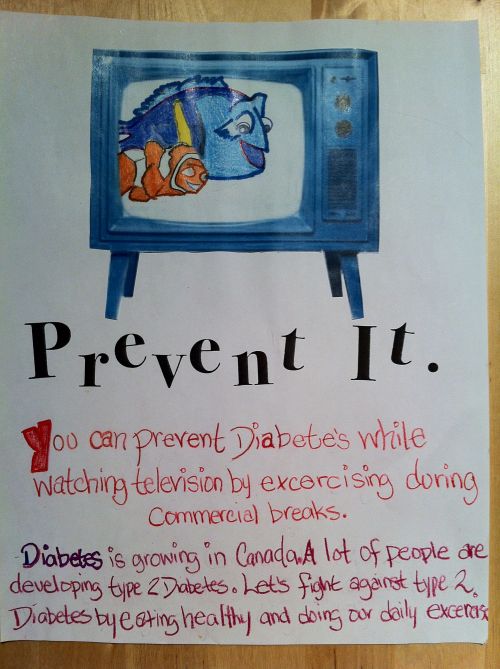 Prevent It.
You can prevent Diabete's while
watching television by excercising during
commercial breaks.
Diabetes is growing in Canada. A lot of people are
developing type 2 Diabetes. Let's fight against type 2.
Diabetes by eating healthy and doing our daily excercise